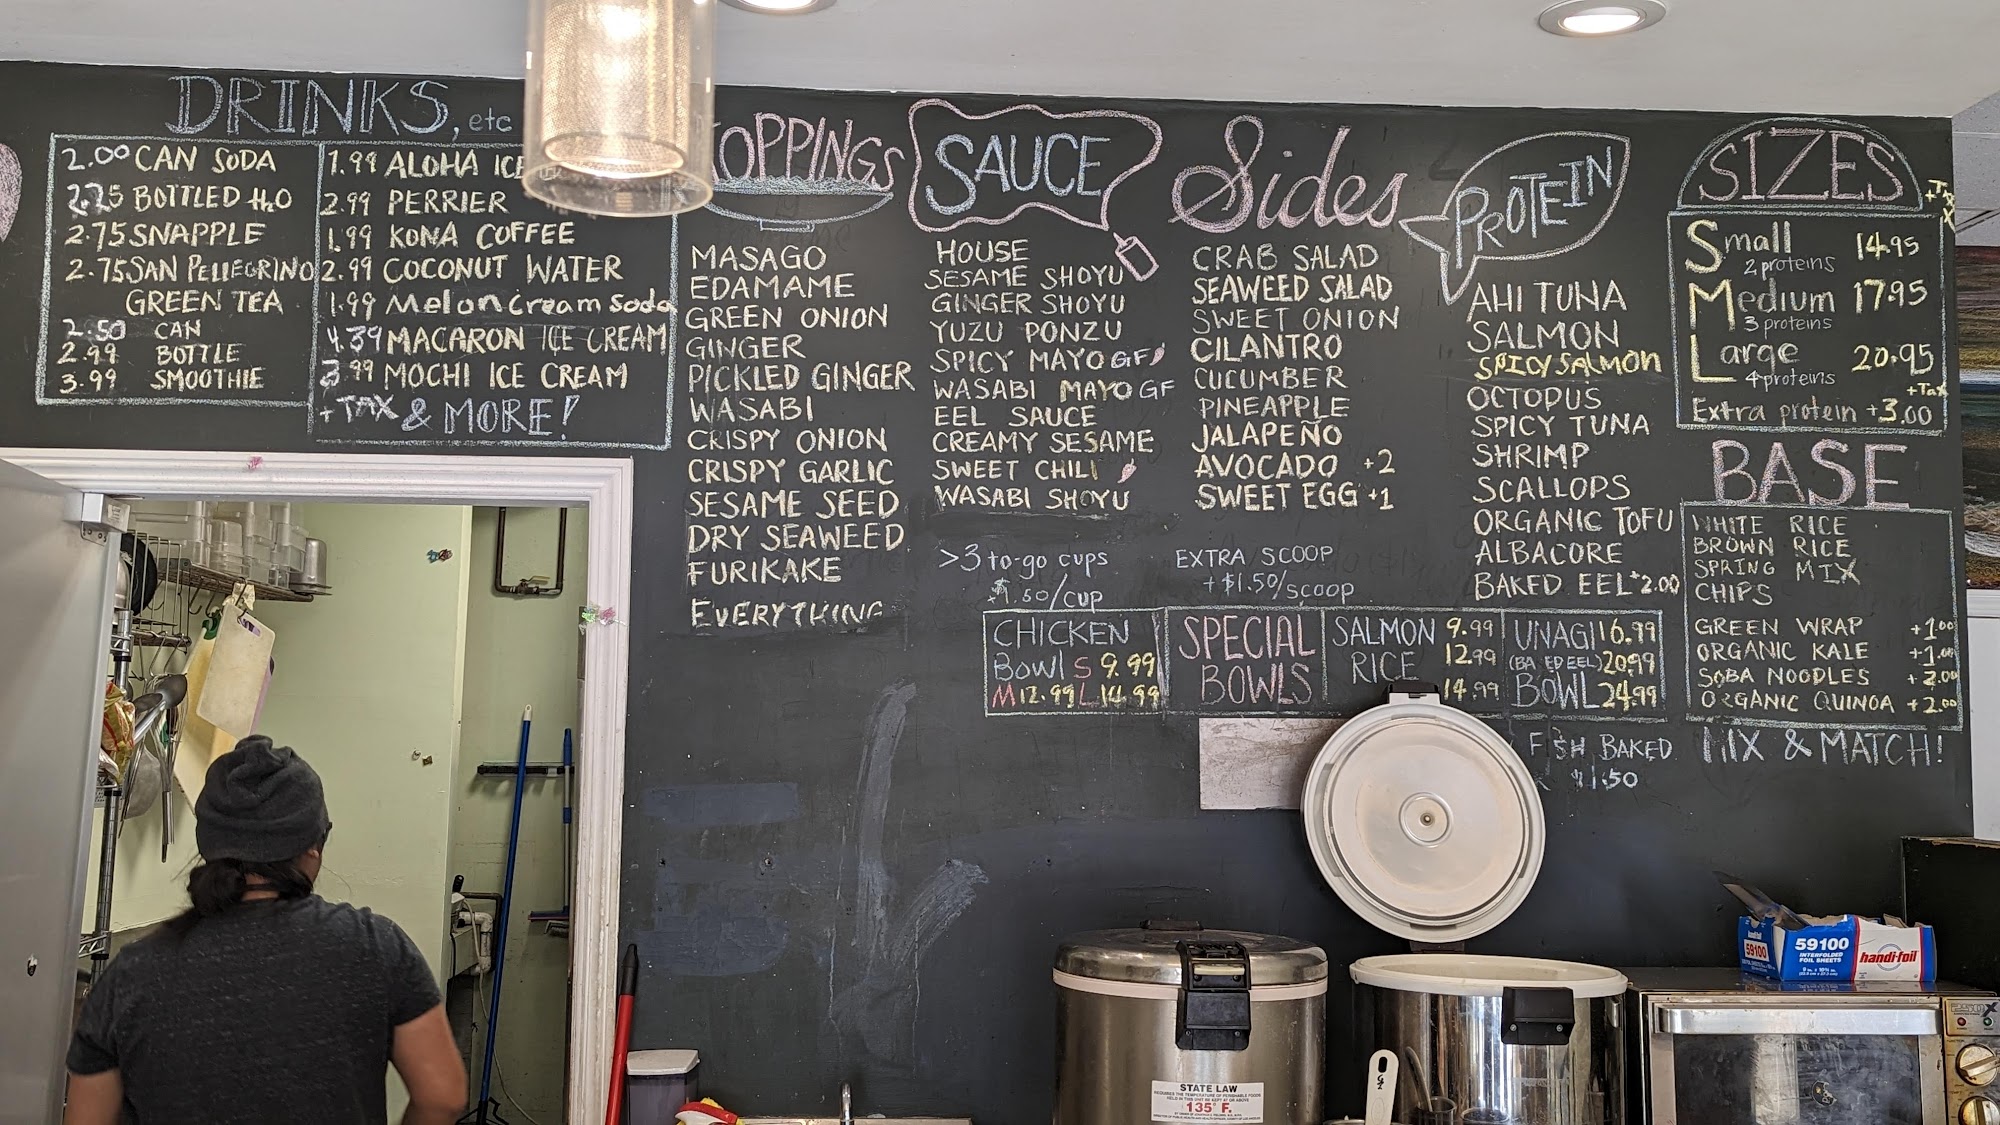 DRINKS, etc
2.00 CAN SODA
BOTTLED H2O
2.75 SNAPPLE
2.75 SAN PELLEGRINO
GREEN TEA
2.50 CAN
2.99 BOTTLE
3.99 SMOOTHIE
1.99 ALOHA ICE
2.99 PERRIER
1.99 KONA COFFEE
2.99 COCONUT WATER
1.99 Melon Cream Soda
4.39 MACARON ICE CREAM
3.99 MOCHI ICE CREAM
+ TAX & MORE!
TOPPINGS
MASAGO
EDAMAME
GREEN ONION
GINGER
PICKLED GINGER
WASABI
CRISPY ONION
CRISPY GARLIC
SESAME SEED
DRY SEAWEED
FURIKAKE
EVERYTHING
SAUCE
HOUSE
SESAME SHOYU
GINGER SHOYU
YUZU PONZU
SPICY MAYO GF
WASABI MAYO GF
EEL SAUCE
CREAMY SESAME
SWEET CHILI
WASABI SHOYU
>3 to-go cups
$1.50/CUP
Sides
CRAB SALAD
SEAWEED SALAD
SWEET ONION
CILANTRO
CUCUMBER
PINEAPPLE
JALAPEÑO
AVOCADO +2
SWEET EGG +1
EXTRA SCOOP
+$1.50/scoop
PROTEIN
AHI TUNA
SALMON
SPICY SALMON
OCTOPUS
SPICY TUNA
SHRIMP
SCALLOPS
ORGANIC TOFU
ALBACORE
BAKED EEL +2.00
SIZES
+TAX
Small 14.95
2 proteins
Medium 17.95
3 proteins
Large 20.95
4 proteins +Tax
Extra protein +3.00
BASE
WHITE RICE
BROWN RICE
SPRING MIX
CHIPS
GREEN WRAP +1.00
ORGANIC KALE +1.00
SOBA NOODLES +2.00
ORGANIC QUINOA +2.00
MIX & MATCH!
CHICKEN
Bowl S 9.99
M 12.99 L 14.99
SPECIAL
BOWLS
SALMON 9.99
RICE 12.99
14.99
UNAGI 16.99
(BAKED EEL) 20.99
BOWL 24.99
FISH BAKED
$1.50
STATE LAW
135° F.
handi-foil
59100
59100
INTERFOLDED
FOIL SHEETS
handi-foil